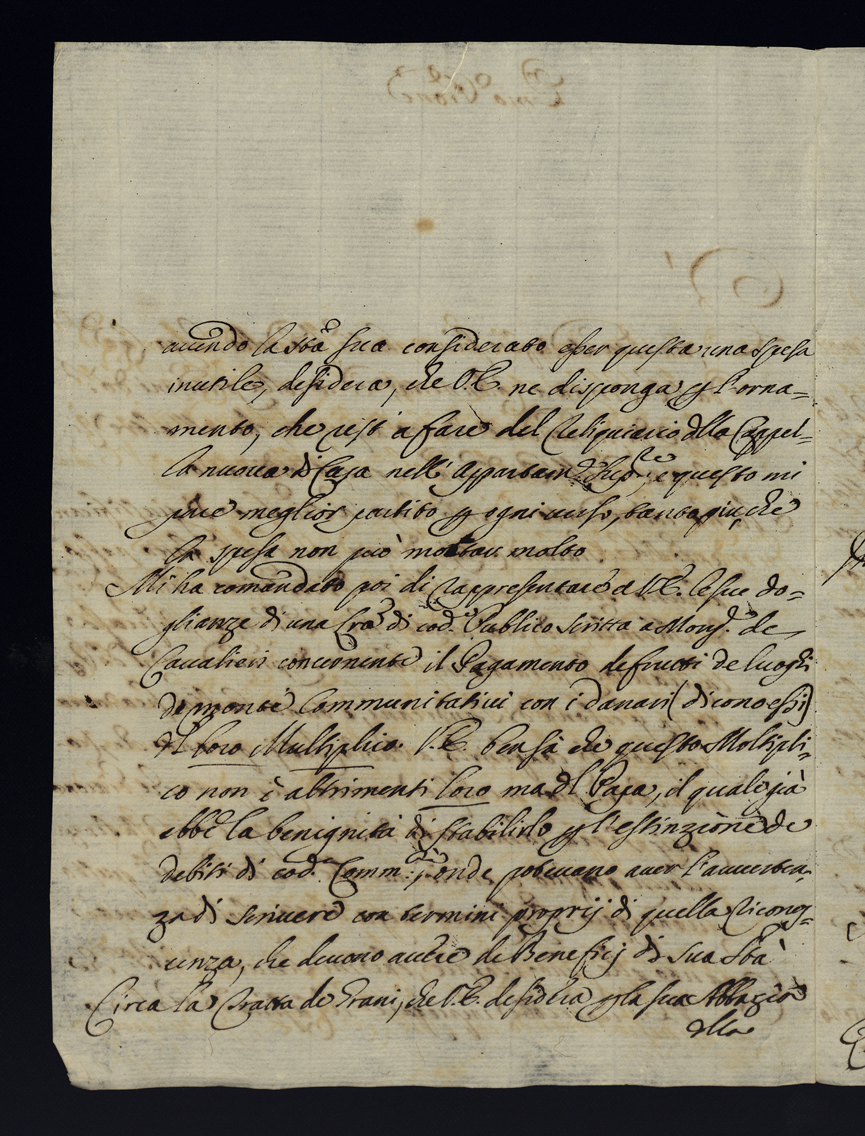 auendo la Stà sua considerato esser questa una spesa
inutile, desidera, che V.E. ne disponga p l'orna=
mento, che resta fare del Reliquiario dlla Cappel=
la nuova di Casa nell' Appartam.to, e questo mi
pare meglior partito p ogni verso, tanto più, che
la spesa non può montar molto
Mi ha comandato poi di rappresentare a V.E. le sue do=
glianze di una Lra di cod.o Publico scritta a Mons.r de
Cavalieri concernente il Pagamento de frutti de luoghi
de monti Communitativi con i danari (dicono essi)
dl loro Multiplico. V.E. ben sà che questo Moltipli=
co non è altrimenti loro ma dl Papa, il quale già
ebbe la benignità di stabilirlo p l'estinzione de
debiti di cod.a Comm.tà, onde potevano aver l'avverten=
za di scrivere con termini proprij di quella ricono=
scenza, che devono avere de Beneficij di Sua Stà
Circa la Tratta de Grani, che V.E. desidera p la sua Abbazia
dlla